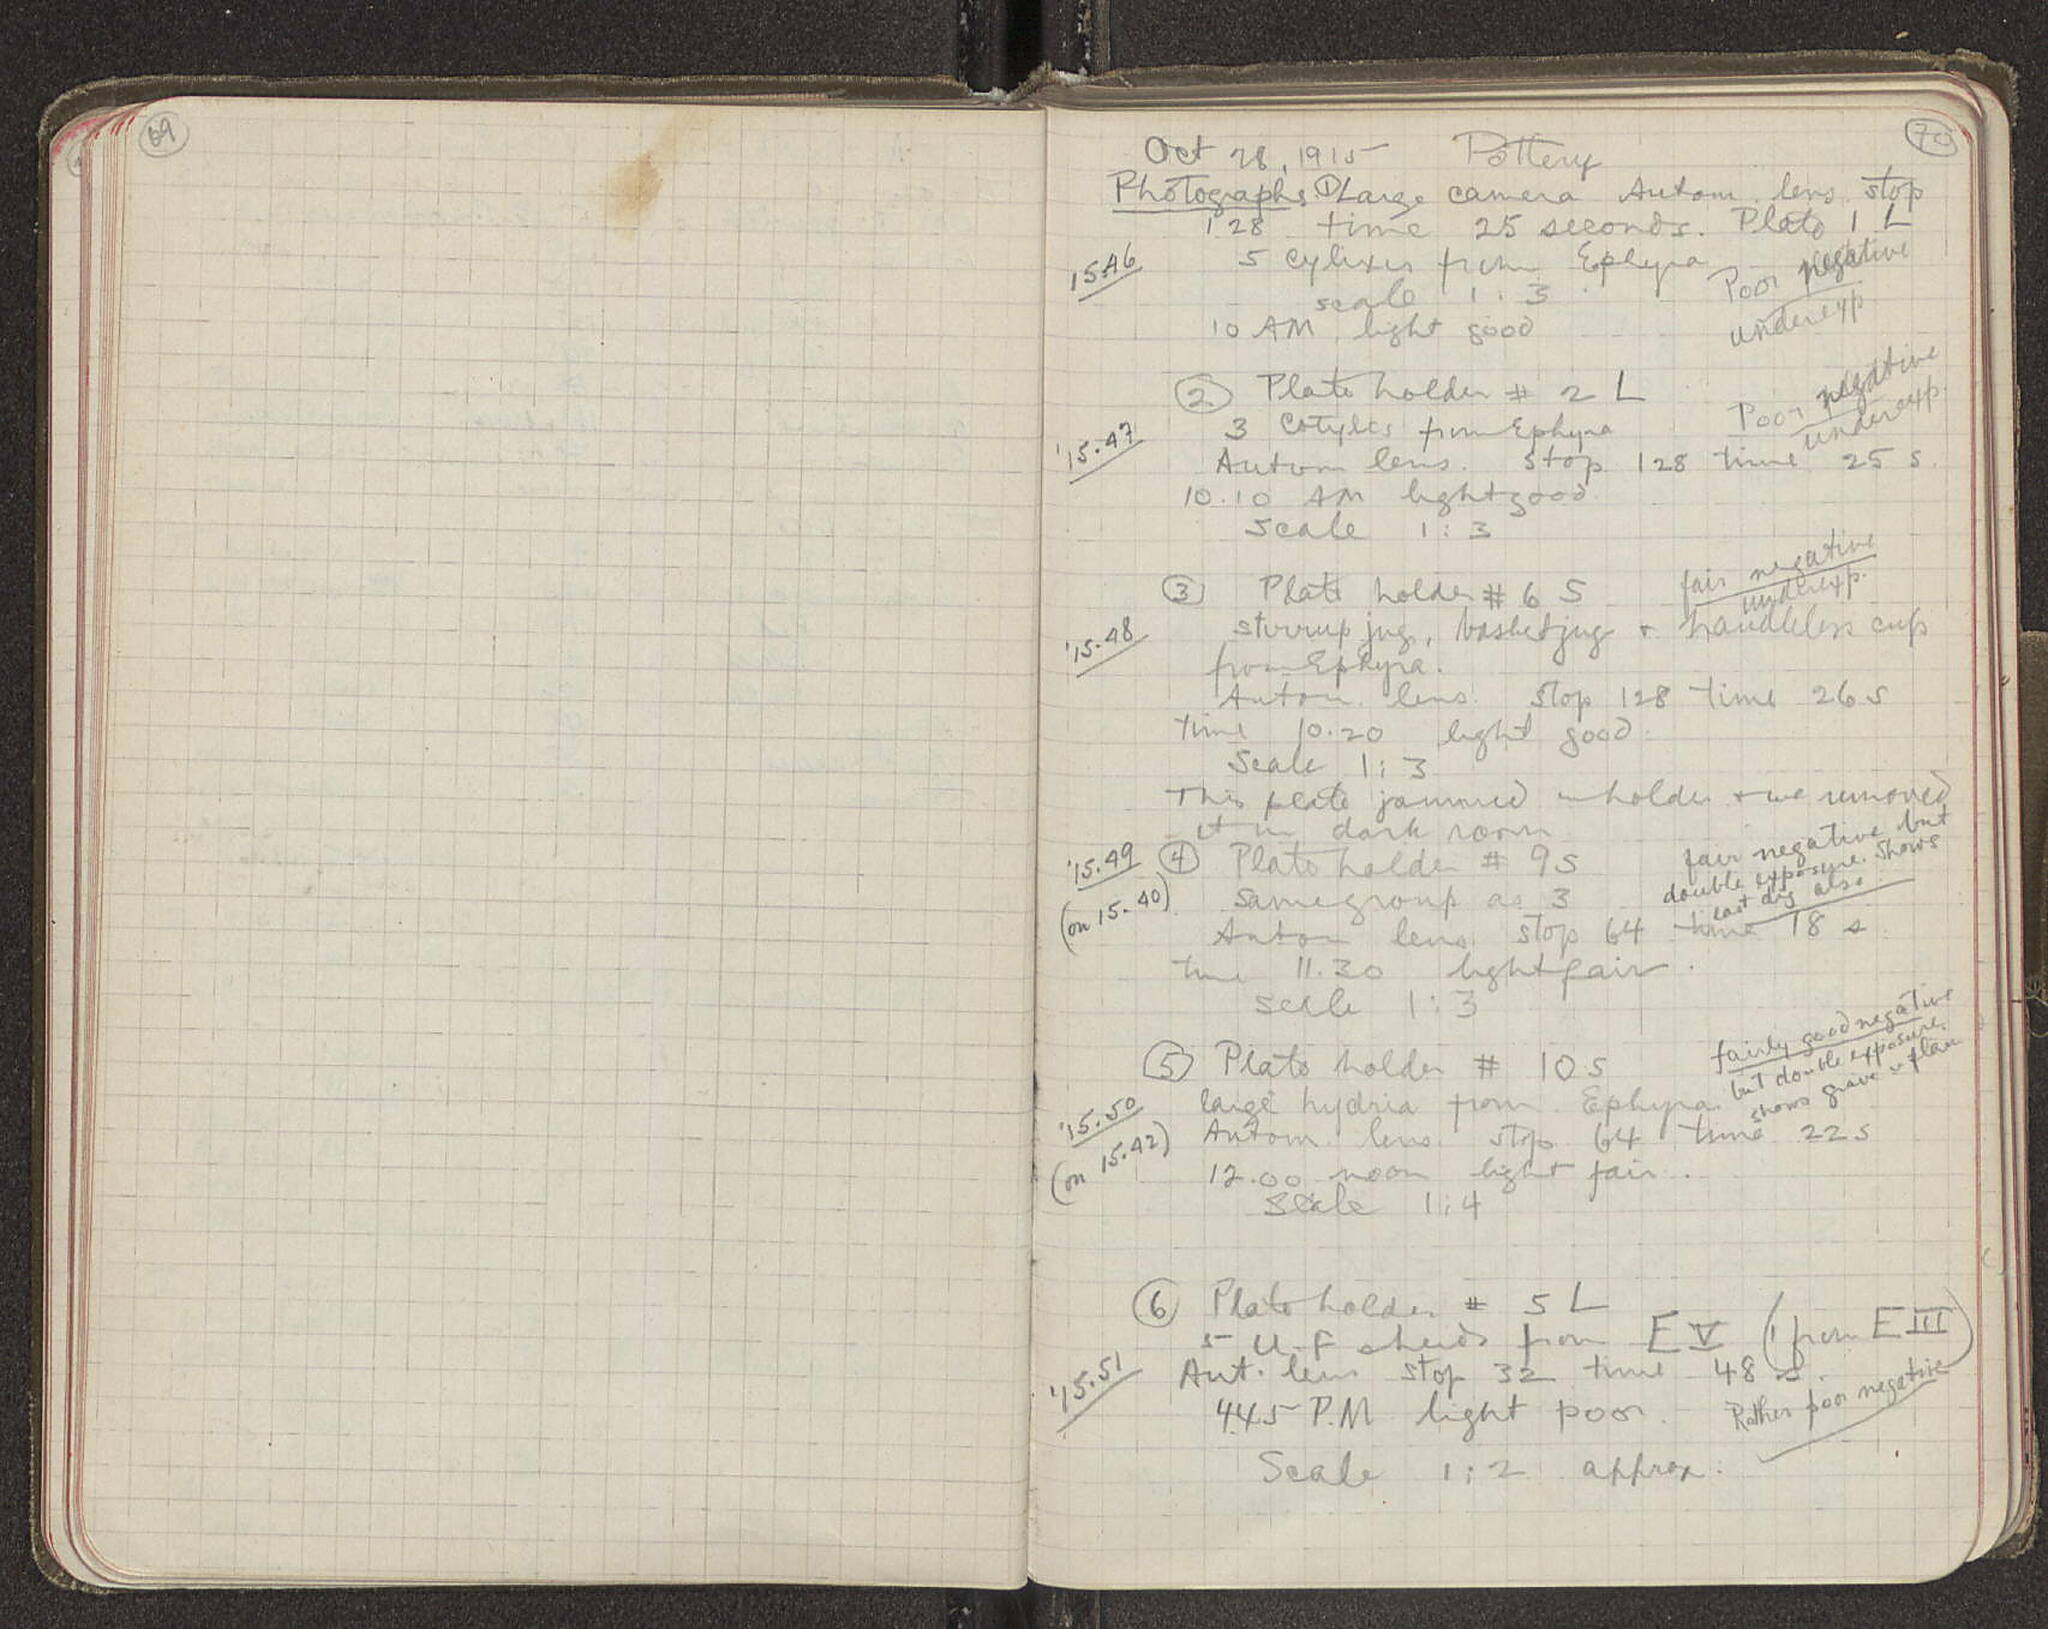 69
70
Oct 28, 1915 Pottery
Photographs ① Large camera Autom. lens stop
128 time 25 seconds. Plate 1 L
15.46
5 cylixes from Ephyra
Poor negative
underexp
scale 1 : 3
10 AM light good
② Plate holder # 2 L
Poor negative
underexp.
3 Cotyles from Ephyra
'15.47
Autom lens. stop 128 time 25 s.
10.10 AM light good
Scale 1 : 3
③ Plate holder # 6 S
fair negative
underexp.
'15.48
stirrup jug, basket jug + handleless cup
from Ephyra.
Autom. lens. Stop 128 time 26 s
time 10.20 light good
Scale 1 : 3
This plate jammed in holder + we removed
it in dark room
'15.49
(on 15.40)
④ Plate holder # 9 S
fair negative but
double exposure. Shows
last dig also
Same group as 3
Autom lens stop 64 time 18 s
time 11.30 light fair.
Scale 1 : 3
⑤ Plate holder # 10 S
fairly good negative
but double exposure.
shows grave + plan
large hydria from Ephyra
'15.50
(on 15.42)
Autom. lens stop 64 time 22 s
12.00 noon light fair.
Scale 1 : 4
⑥ Plate holder # 5 L
5 U-F sherds from E V (1 from E III)
'15.51
Aut. lens stop 32 time 48 s.
4.45 P.M light poor.
Rather poor negative
Scale 1 : 2 approx.